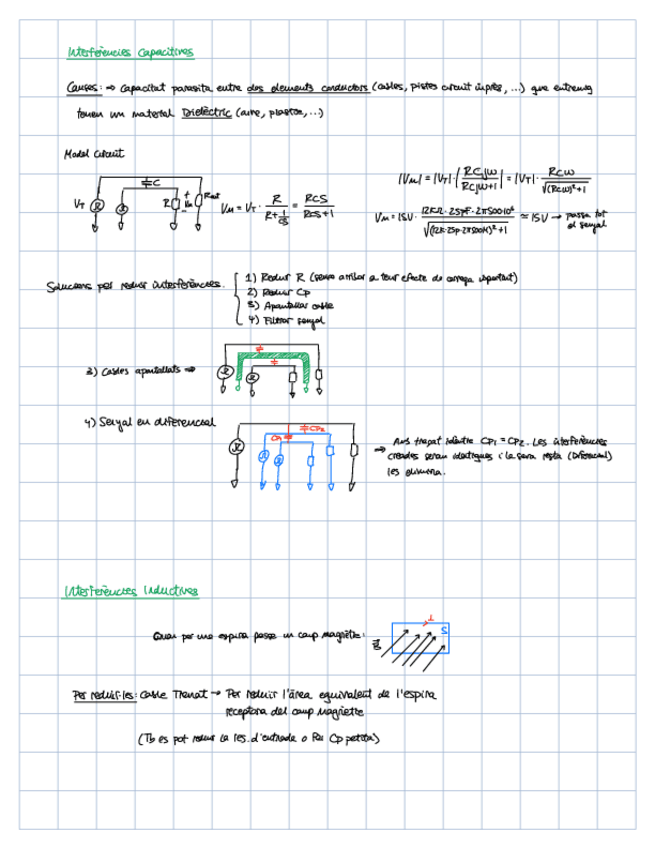 Interferències Capacitives
Causes: → Capacitat parasita entre dos elements conductors (cables, pistes circuit imprès, ...) que entremig
tenen un material Dielèctric (aire, plastic, ...)
Model Circuit
VT C R Rout + Vm -
Vm = VT · R / (R + 1/CS) = RCS / (RCS+1)
|Vm| = |VT| · |RCjω / (RCjω+1)| = |VT| · RCω / √((RCω)²+1)
Vm = 15V · 12K · 25pF · 2π500·10⁶ / √((12K·25p·2π500M)²+1) ≃ 15V → passa tot
el senyal
Solucions per reduir interferències.
1) Reduir R (sense arribar a tenir efecte de carrega important)
2) Reduir Cp
3) Apantallar cable
4) Filtrar senyal
3) Cables apantallats ⇒
4) Senyal en diferencial
CP1 CP2
⇒ Amb traçat idèntic CP1 = CP2. Les interferències
creades seran identiques i la seva resta (Diferencial)
les elimina.
Interferències Inductives
Quan per una espira passa un camp magnètic: B S
Per reduir-les: Cable Trenat → Per reduir l'àrea equivalent de l'espira
receptora del camp Magnètic
(Tb es pot reduir la res. d'entrada o fer Cp petita)